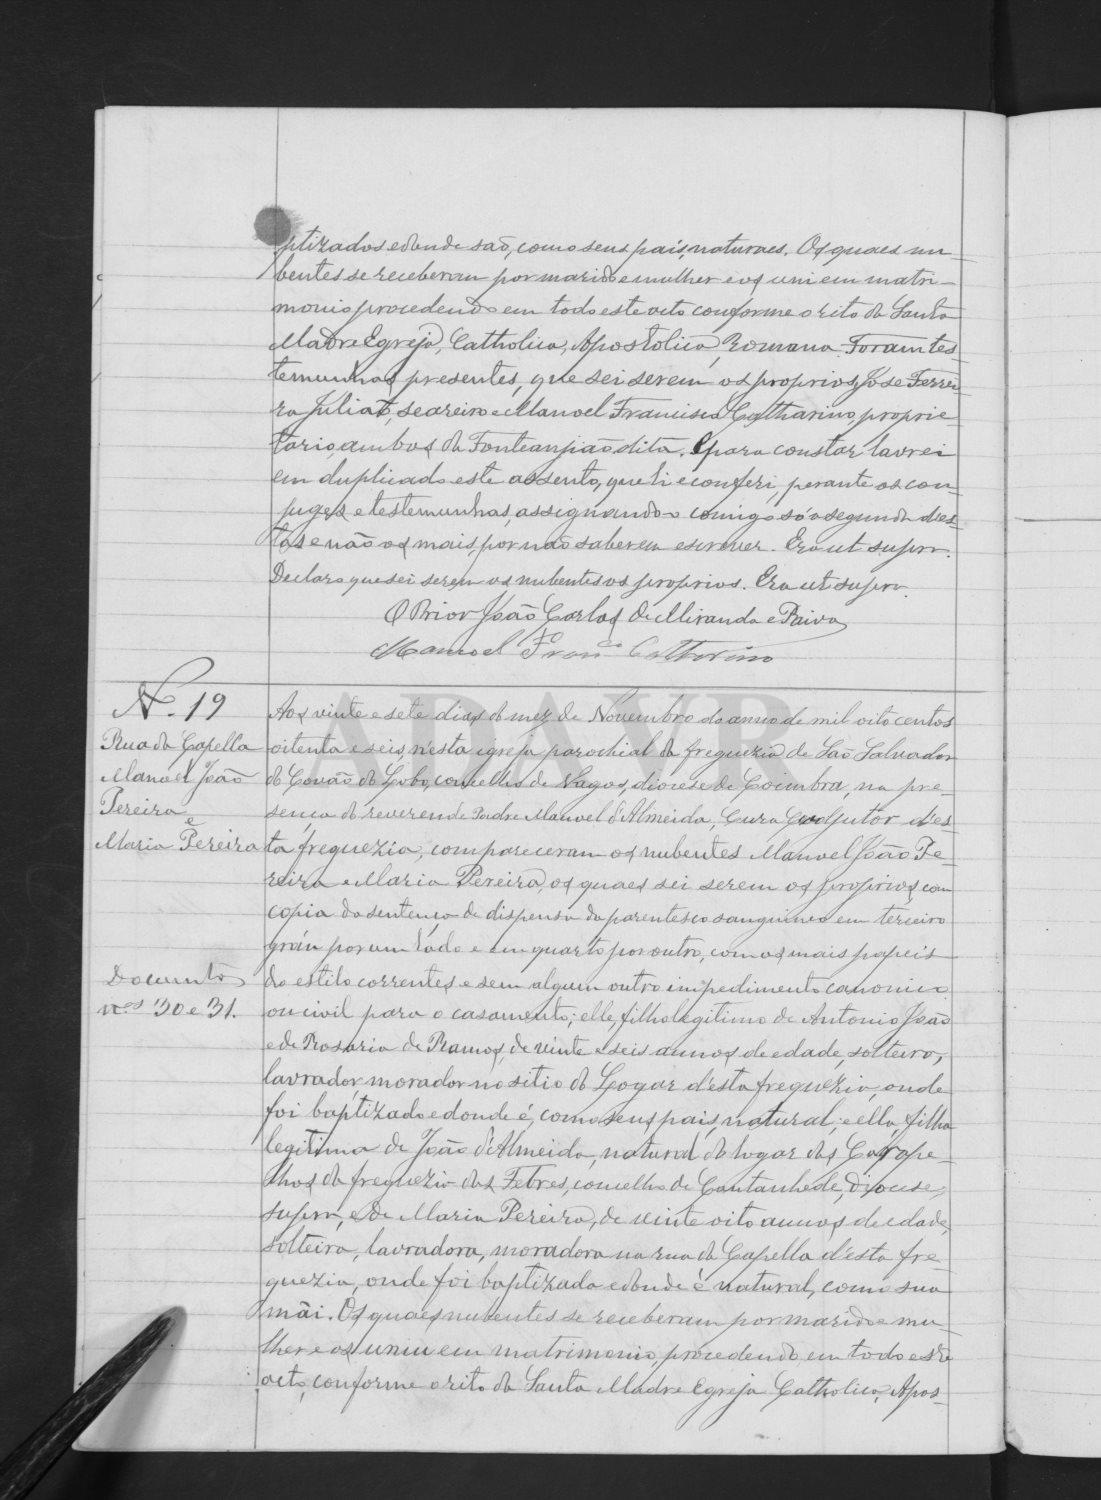 ptizados e donde são, como seus pais, naturaes. Os quaes nu-
bentes se receberam por marido e mulher e os uni em matri-
monio procedendo em todo este acto conforme o rito da Santa
Madre Egreja, Catholica, Apostolica, Romana. Foram tes-
temunhas presentes, que sei serem os proprios, José Ferrei-
ra Julião, seareiro e Manoel Francisco Catharino, proprie-
tario, ambos da Fonteanjião dita. E para constar lavrei
em duplicado este assento, que li e conferi, perante os con-
juges e testemunhas, assignando-o comigo só o segundo d'es-
tas e não os mais, por não saberem escrever. Era ut supra.
Declaro que sei serem os nubentes os proprios. Era ut supra.
O Prior João Carlos de Miranda e Paiva
Manoel Franco Catharino
ADAVR
N. 19
Rua da Capella
Manoel João
Pereira
e
Maria Pereira
Documtos
nos 30 e 31.
Aos vinte e sete dias do mez de Novembro do anno de mil oito centos
oitenta e seis, nesta igreja parochial da freguezia de São Salvador
do Covão do Lobo, concelho de Vagos, diocese de Coimbra, na pre-
sença do reverendo Padre Manoel d'Almeida, Cura Coadjutor d'es-
ta freguezia, compareceram os nubentes Manoel João Pe-
reira e Maria Pereira, os quaes sei serem os proprios, com
copia da sentença de dispensa do parentesco sanguineo em terceiro
gráu por um lado e em quarto por outro, com os mais papeis
do estilo correntes e sem algum outro impedimento canonico
ou civil para o casamento; elle, filho legitimo de Antonio João
e de Rosaria de Ramos, de vinte e seis annos de edade, solteiro,
lavrador, morador no sitio do Logar d'esta freguezia, onde
foi baptizado e donde é, como seus pais, natural; e ella, filha
legitima de João d'Almeida, natural do logar dos Carape-
lhos da freguezia das Febres, concelho de Cantanhede, diocese
supra, e de Maria Pereira, de vinte oito annos de edade,
solteira, lavradora, moradora na rua da Capella d'esta fre-
guezia, onde foi baptizada e donde é natural, como sua
mãi. Os quaes nubentes se receberam por marido e mu-
lher e os uniu em matrimonio, procedendo em todo este
acto, conforme o rito da Santa Madre Egreja Catholica, Apos-